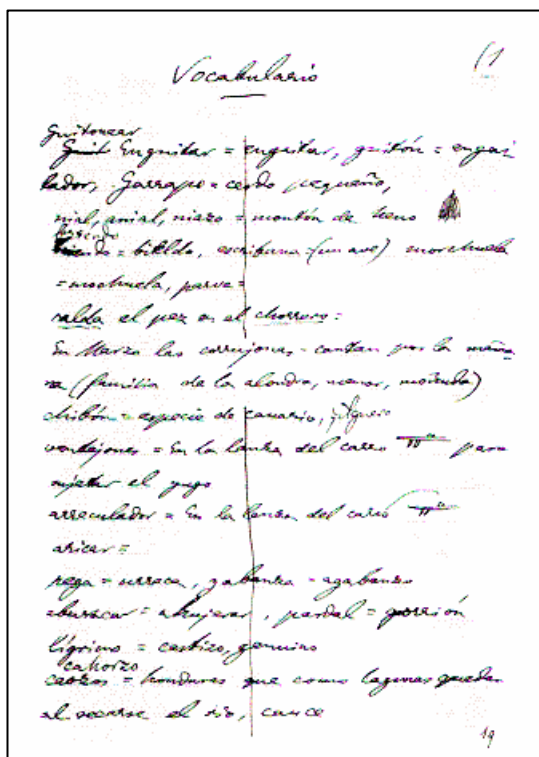 (1
Vocabulario
Guitonear
Enguitar = engaitar, guitón = engai
lador, Garrapo = cerdo pequeño,
nial, anial, niazo = montón de heno
= bieldo, escribana = (un ave) morchuela
= mochuela, parva =
salda el pez en el chorrero =
En Marzo las corrujonas - cantan por la maña
na (familia de la alondra, menor, moñuda)
chibón = especie de canario, jilguero
ventejones = En la lanza del carro para
sujetar el yugo
arreculador = En la lanza del carro
aricar =
pega = urraca, gabanza = agabanzo
aburacar = ahujerar, pardal = gorrión
lígrimo = castizo, genuino
cahorzo
= honduras que como lagunas quedan
al secarse el río, cauce
19